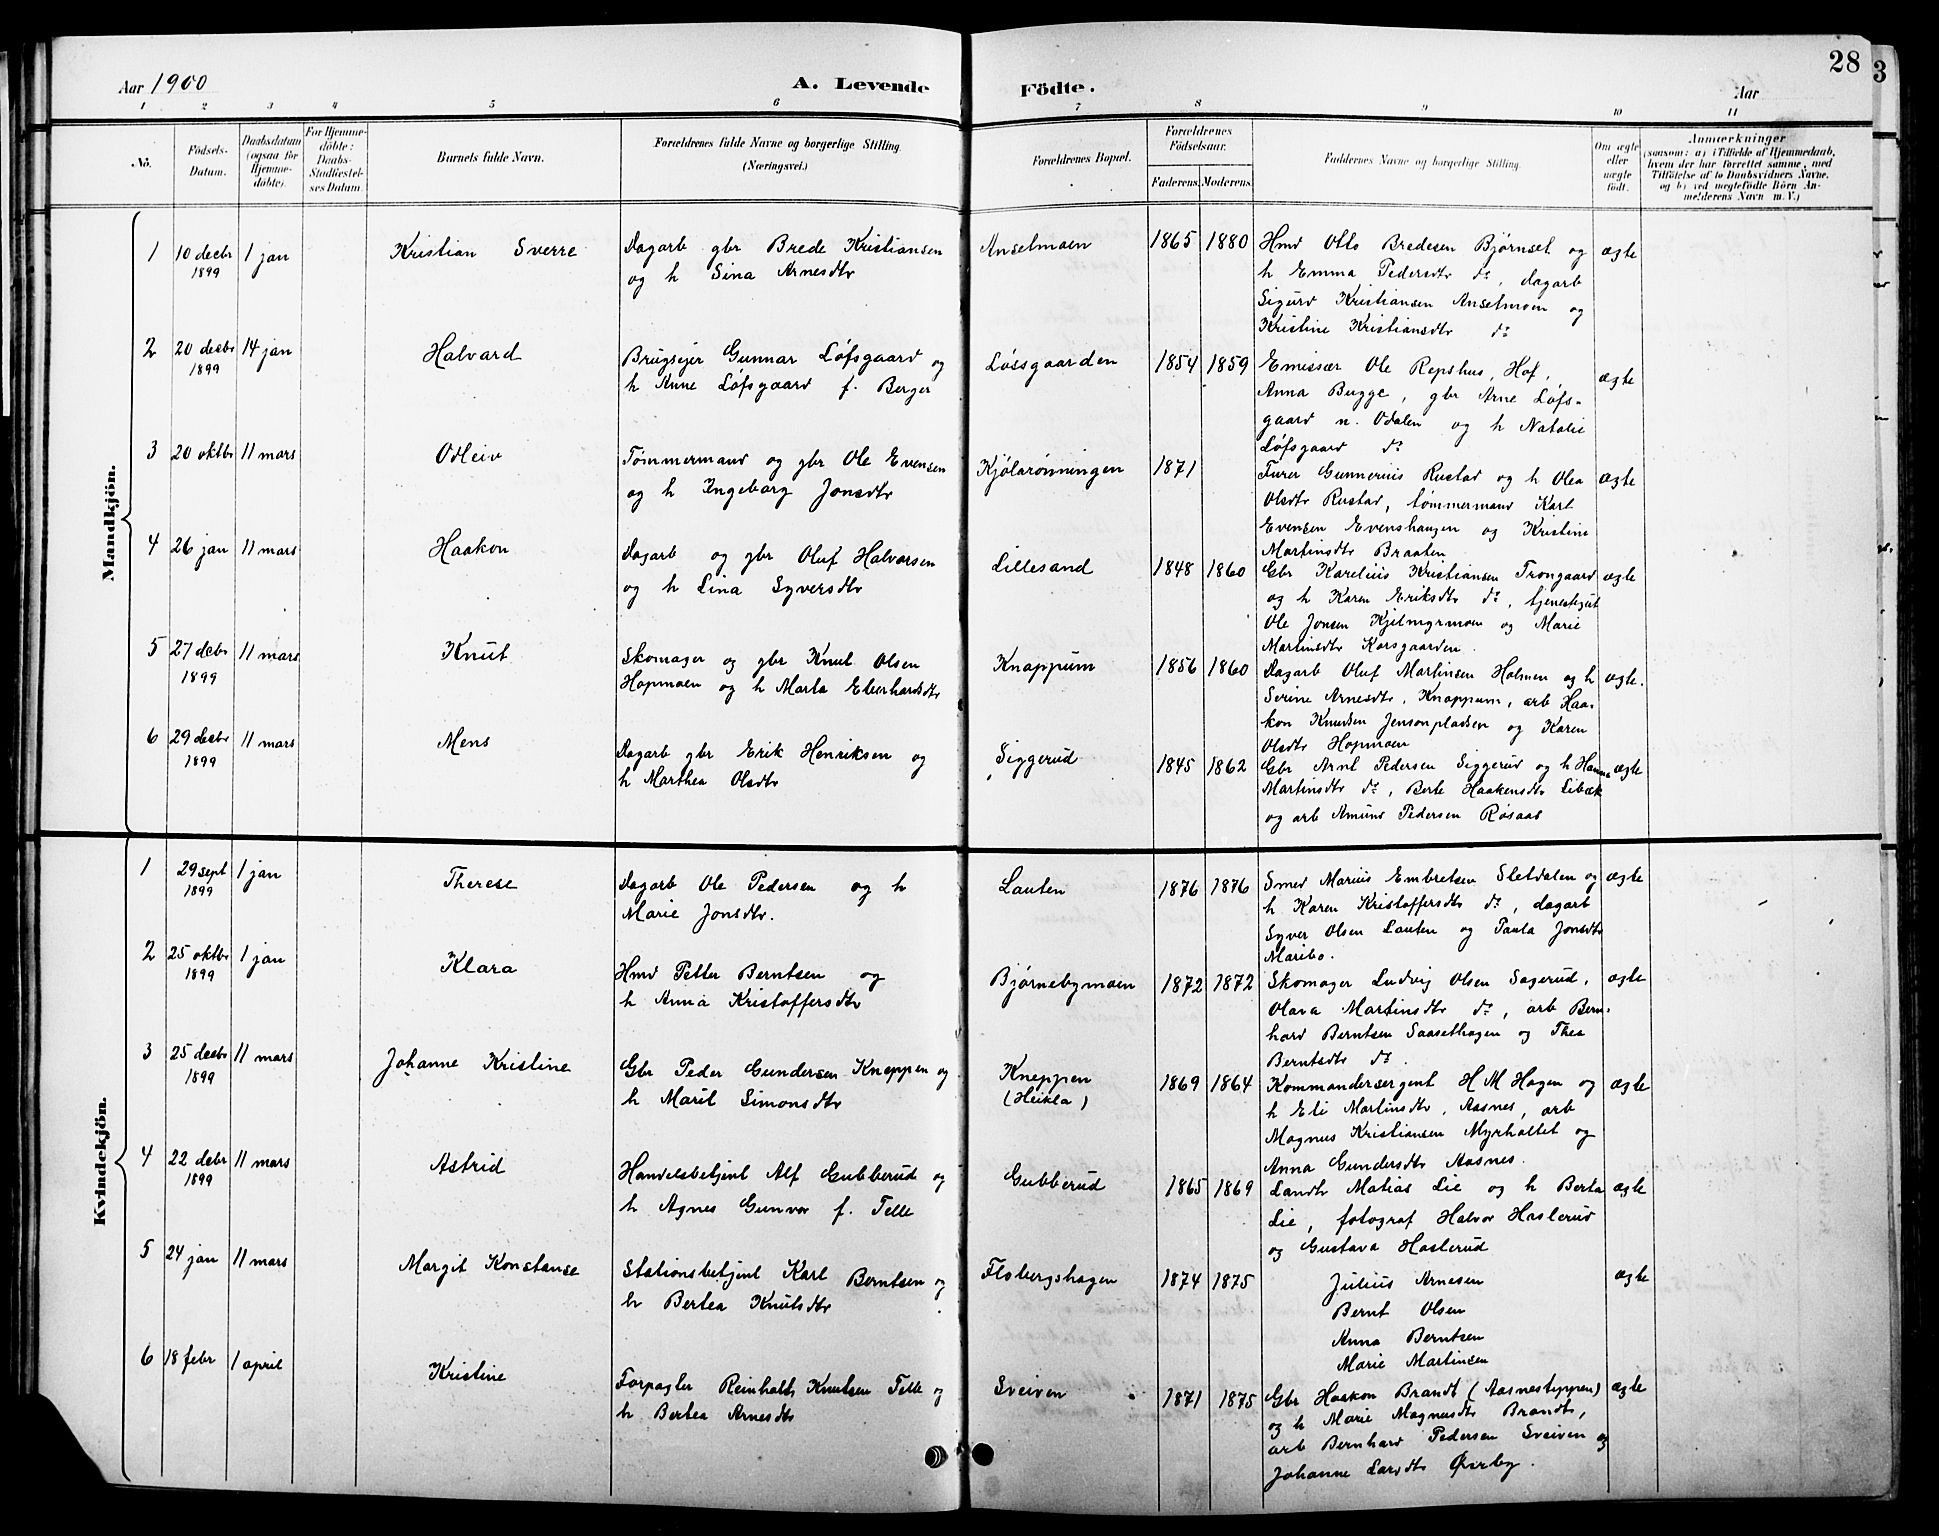 28
3
Aar 1900
A. Levende Födte.
Aar
1 2 3 4 5 6 7 8 9 10 11
No.
Födsels-Datum.
Daabsdatum (ogsaa för Hjemme-döbte).
For Hjemme-döbte: Daabs-Stadfæstel-ses Datum.
Barnets fulde Navn.
Forældrenes fulde Navne og borgerlige Stilling.
(Næringsvei.)
Forældrenes Bopæl.
Forældrenes Födselsaar.
Faderens. Moderens.
Faddernes Navne og borgerlige Stilling.
Om ægte eller uægte födt.
Anmærkninger
(saasom: a) i Tilfælde af Hjemmedaab,
hvem der har forrettet samme, med
Tilföielse af to Daabsvidners Navne.
og b) ved uægtefödte Börn An-
melderens Navn m. V.)
Mandkjön.
1 10 decbr 1899 1 jan Kristian Sverre Dagarb gbr Brede Kristiansen
og h Sina Arnesdtr
Anselmoen 1865 1880 Hmd Otto Bredesen Bjørnset og ægte
h Emma Pedersdtr do, dagarb
Sigurd Kristiansen Anselmoen og
Kristine Kristiansdtr do
2 20 decbr 1899 14 jan Halvard Brugsejer Gunnar Løfsgaard og
h Anne Løfsgaard f. Berger
Løssgaarden 1854 1859 Emissær Ole Repshus, Hof, ægte
Anna Bugge, gbr Arne Løfs-
gaard n. Odalen og h Natalie
Løfsgaard do
3 20 oktbr 11 mars Odleiv Tømmermand og gbr Ole Evensen
og h Ingeborg Jonsdtr
Kjølarønningen 1871 Furer Gunnerius Rustad og h Olea ægte
Olsdtr Rustad, tømmermand Karl
Evensen Evenshaugen og Kristine
Martinsdtr Braaten
4 26 jan 11 mars Haakon Dagarb og gbr Oluf Halvorsen
og h Lina Syversdtr
Lillesand 1848 1860 Gbr Karelius Kristiansen Trongaard ægte
og h Karen Eriksdtr do, tjenestegut
Ole Jonsen Kjelmyrmoen og Marie
Martinsdtr Korsgaarden.
5 27 decbr 1899 11 mars Knut Skomager og gbr Knut Olsen
Hopmoen og h Marta Eberhardsdtr
Knappum 1856 1860 Dagarb Oluf Martinsen Holmen og h ægte.
Serine Arnesdtr, Knappum, arb Haa-
kon Knudsen Jensonpladsen og Karen
Olsdtr Hopmoen
6 29 decbr 1899 11 mars Mens Dagarb gbr Erik Henriksen og
h Marthea Olsdtr
Siggerud 1845 1862 Gbr Arnt Pedersen Siggerud og h Hanna ægte
Martinsdtr do, Berte Haakensdtr Libæk
og arb Amund Pedersen Røsaas
Kvindekjön.
1 29 sept 1899 1 jan Therese Dagarb Ole Pedersen og h
Marie Jonsdtr.
Lauten 1876 1876 Smed Marius Embretsen Sletdalen og ægte
h Karen Kristoffersdtr do, dagarb
Syver Olsen Lauten og Paula Jonsdtr
Maribo.
2 25 oktbr 1899 1 jan Klara Hmd Petter Berntsen og
h Anna Kristoffersdtr
Bjørnebymoen 1872 1872 Skomager Ludvig Olsen Sagerud, ægte
Olava Martinsdtr do, arb Bern-
hard Berntsen Saasethagen og Thea
Berntsdtr do.
3 25 decbr 1899 11 mars Johanne Kristine Gbr Peder Gundersen Kneppen og
h Marit Simonsdtr
Kneppen 1869 1864 Kommandersergent H M Hagen og ægte
(Heikla) h Eli Martinsdtr, Aasnes, arb
Magnus Kristiansen Myrholtet og
Anna Gundersdtr Aasnes.
4 22 decbr 1899 11 mars Astrid Handelsbetjent Alf Gubberud og
h Agnes Gunvor f. Telle
Gubberud 1865 1869 Landhr Matias Lie og h Berta ægte
Lie, fotograf Halvor Haslerud
og Gustava Haslerud
5 24 jan 11 mars Margit Konstanse Stationsbetjent Karl Berntsen og
h Bertea Knutsdtr
Flobergshagen 1874 1875 Julius Arnesen ægte
Bernt Olsen
Anna Berntsen
Marie Martinsen
6 18 febr 1 april Kristine Forpagter Reinholdt Knutsen Telle og
h Bertea Arnesdtr
Sveiven 1871 1875 Gbr Haakon Brandt (Aasnestyppen) ægte
og h Marie Magnusdtr Brandt,
arb Bernhard Pedersen Sveiven og
Johanne Larsdtr Øverby.